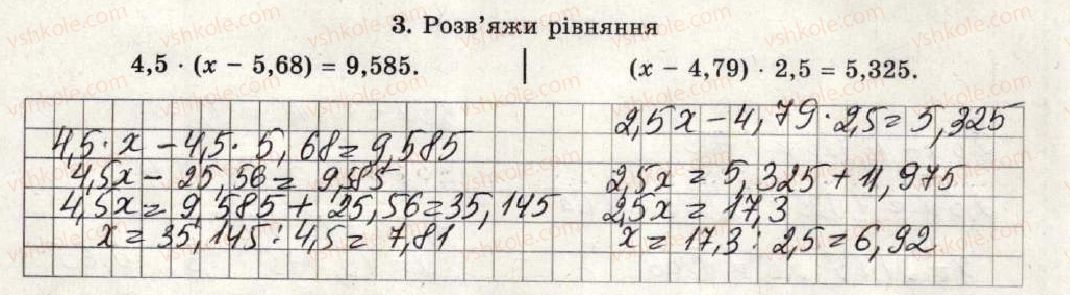 3. Розв'яжи рівняння
4,5 · (x − 5,68) = 9,585.
(x − 4,79) · 2,5 = 5,325.
4,5 · x − 4,5 · 5,68 = 9,585
4,5x − 25,56 = 9,585
4,5x = 9,585 + 25,56 = 35,145
x = 35,145 : 4,5 = 7,81
2,5x − 4,79 · 2,5 = 5,325
2,5x = 5,325 + 11,975
2,5x = 17,3
x = 17,3 : 2,5 = 6,92